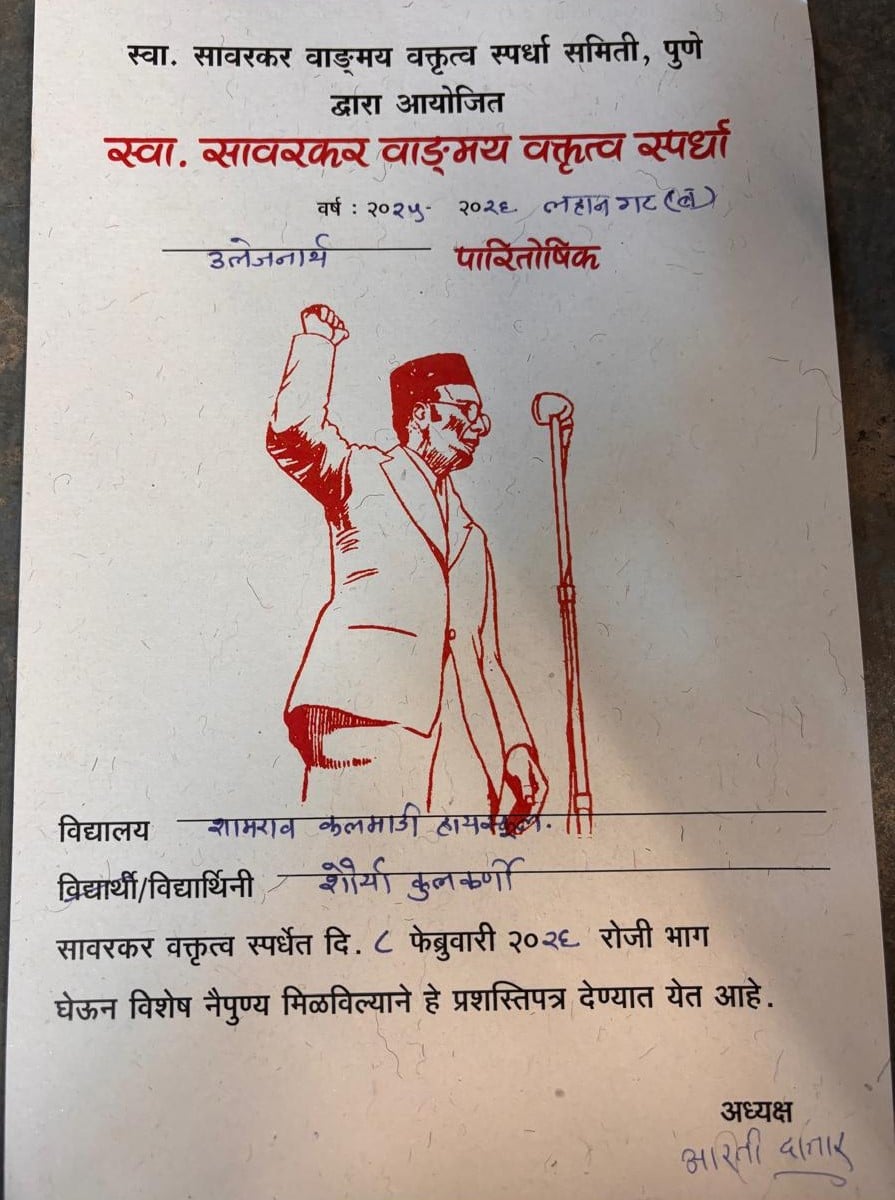 स्वा. सावरकर वाङ्‌मय वक्तृत्व स्पर्धा समिती, पुणे
द्वारा आयोजित
स्वा. सावरकर वाङ्‌मय वक्तृत्व स्पर्धा
वर्ष : २०२५- २०२६ लहान गट (ब)
उत्तेजनार्थ पारितोषिक
विद्यालय शामराव कलमाडी हायस्कूल.
विद्यार्थी/विद्यार्थिनी शौर्या कुलकर्णी
सावरकर वक्तृत्व स्पर्धेत दि. ८ फेब्रुवारी २०२६ रोजी भाग
घेऊन विशेष नैपुण्य मिळविल्याने हे प्रशस्तिपत्र देण्यात येत आहे.
अध्यक्ष
आरती दातार